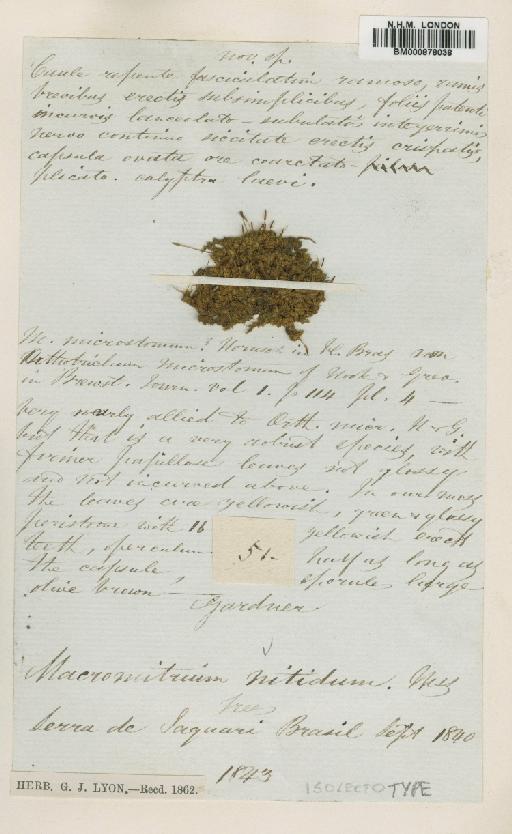 N.H.M. LONDON
BM000878038
nov. sp.
Caule repente fasciculatim ramoso, ramis
brevibus erectis subsimplicibus, foliis patenti
incurvis lanceolato-subulatis integerrimis
nervo continuo siccitate erectis crispatis,
capsula ovata ore coarctato-
plicato. calyptra laevi.
M. microstomum? Hornsch in Fl. Bras non
Orthotrichum microstomum of Hook & Grev.
in Brewst. Journ. vol 1. p 114 pl. 4 —
Very nearly allied to Orth. micr. H & G.
but that is a very robust species, with
former papillose leaves not glossy
and not incurved above. In our moss
the leaves are yellowish, green & glossy
peristome with 16 yellowish erect
teeth, operculum half as long as
the capsule, sporules large
olive brown —
51.
Gardner
Macromitrium nitidum.
Tree
Serra de Jaquari Brasil Sept 1840
1843
HERB. G. J. LYON.—Recd. 1862.
ISOLECTOTYPE